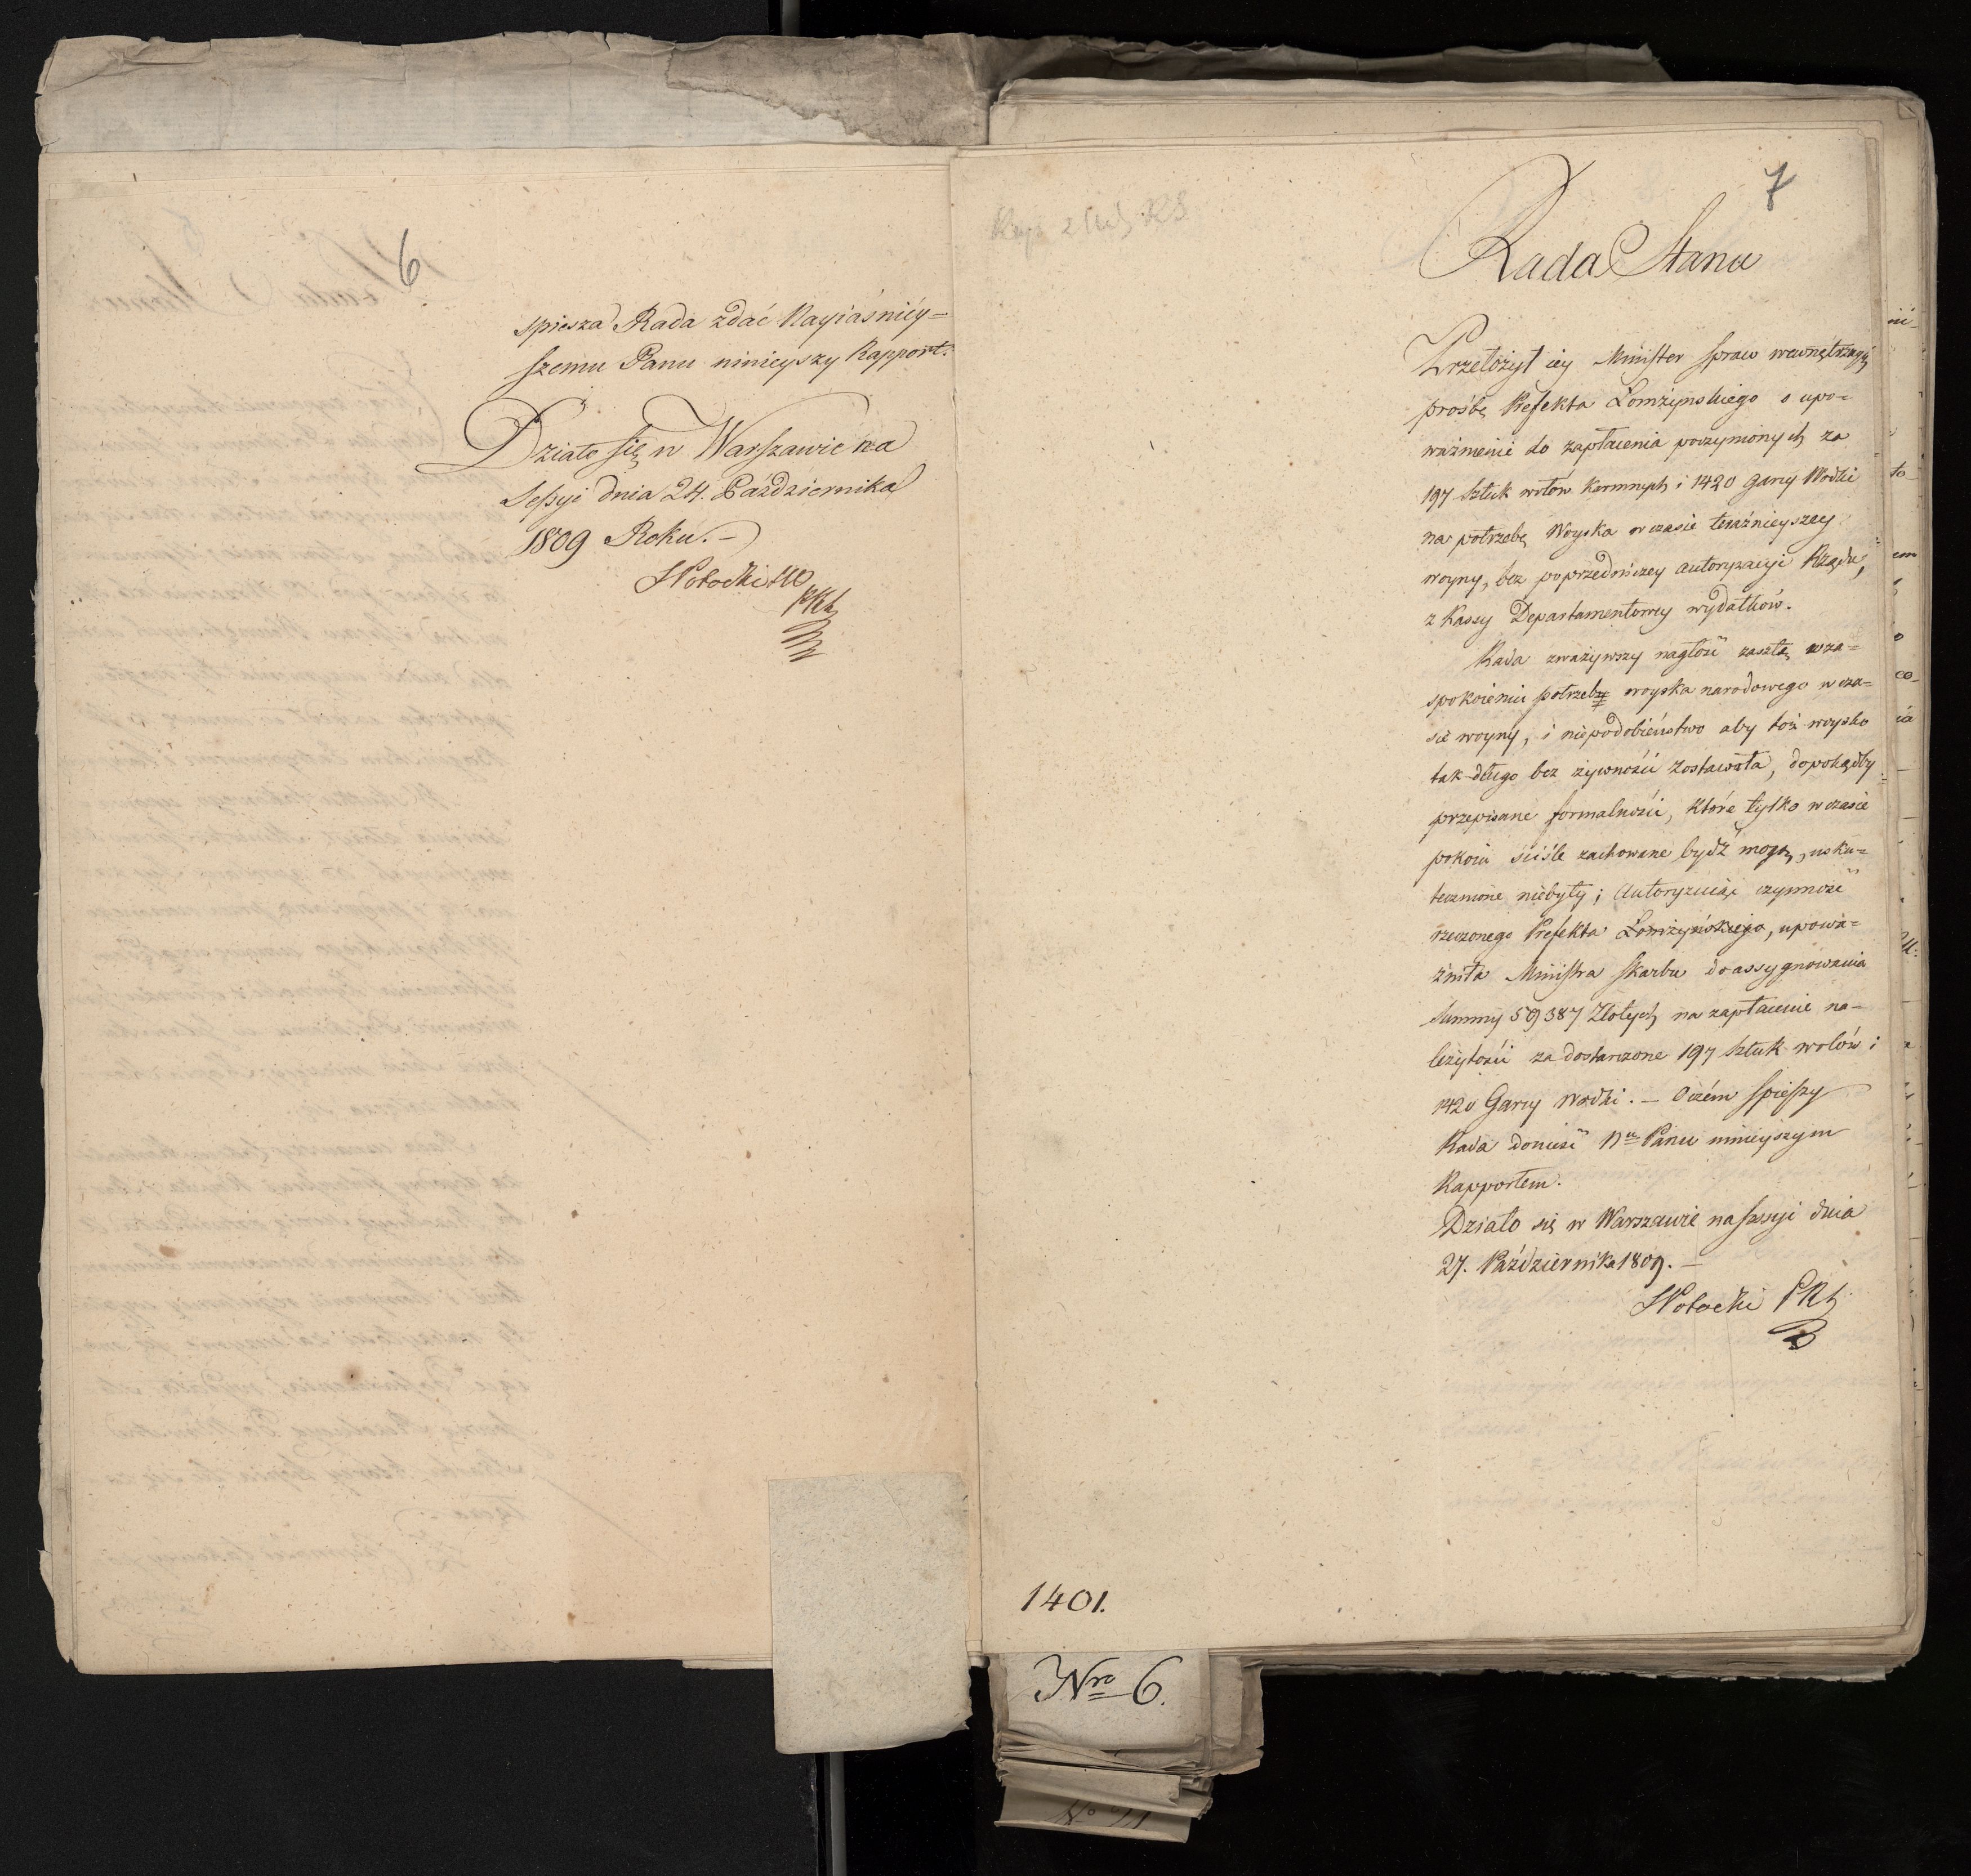 6
spiesza Rada zdać Nayiaśniey=
szemu Panu ninieyszy Rapport.
Działo się w Warszawie na
Sessyi dnia 24. Października
1809 Roku. –
7
Rada Stanu
Przełożył iey Minister Spraw wewnętrznych
prośbę Prefekta Łomżynskiego o upo=
ważnienie do zapłacenia poczynionych za
197 sztuk wołow karmnych i 1420 garcy Wodki
na potrzebę Woyska w czasie teraźnieyszey
woyny, bez poprzedniczey autoryzacyi Rządu,
z Kassy Departamentowey wydatków.
Rada zważywszy nagłość zaszłą w za=
spokoieniu potrzeby woyska narodowego w cza=
sie woyny, i niepodobieństwo aby toż woysko
tak długo bez żywności zostawało, dopokądby
przepisane formalności, które tylko w czasie
pokoiu ściśle zachowane bydź mogą, usku=
tecznione niebyły; Autoryzuiąc czynność
rzeczonego Prefekta Łomżyńskiego, upowa=
żniła Ministra Skarbu do assygnowania
Summy 59387 Złotych na zapłacenie na=
leżytości za dostarczone 197 sztuk wołów i
1420 Garcy Wodki. – O czém spieszy
Rada donieść N<sup>u</sup> Panu ninieyszym
Rapportem.
Działo się w Warszawie na Sessyi dnia
27. Października 1809. –
SPotocki PRS
1401.
Nro 6.